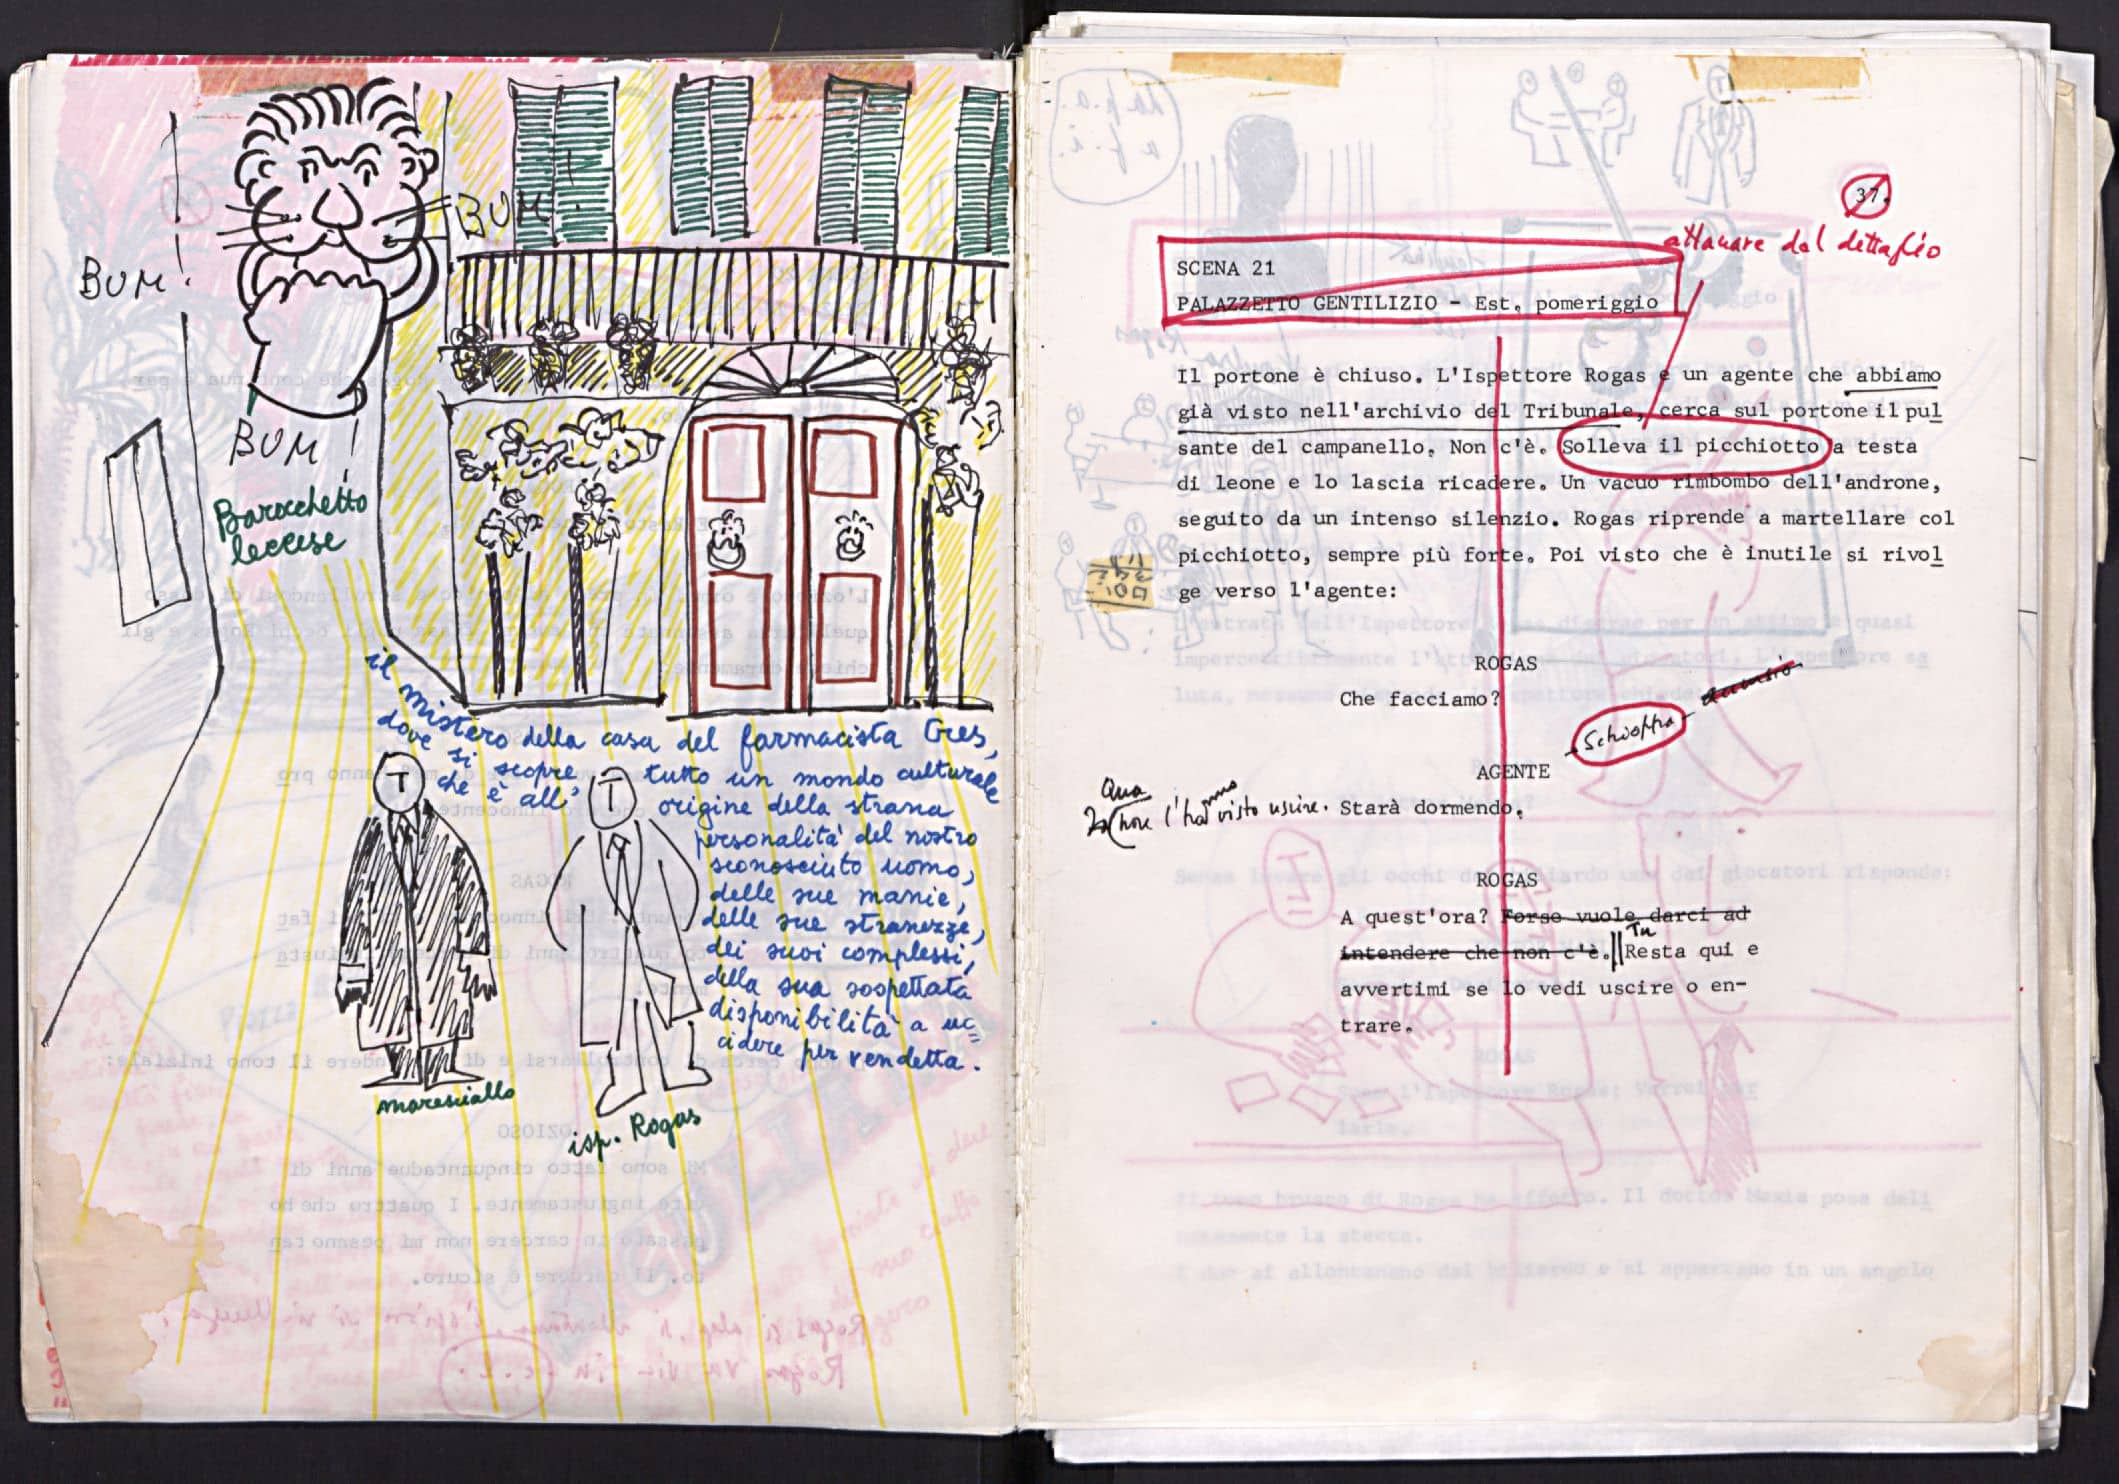 BUM!
BUM!
BUM!
Barocchetto
leccese
il mistero della casa del farmacista Cres,
dove si scopre tutto un mondo culturale
che è all'origine della strana
personalità del nostro
sconosciuto uomo,
delle sue manie,
delle sue stranezze,
dei suoi complessi,
della sua sospettata
disponibilità a uc=
cidere per vendetta.
maresciallo
isp. Rogas
37.
attaccare dal dettaglio
SCENA 21
PALAZZETTO GENTILIZIO - Est. pomeriggio
Il portone è chiuso. L'Ispettore Rogas e un agente che abbiamo
già visto nell'archivio del Tribunale, cerca sul portone il pul
sante del campanello. Non c'è. Solleva il picchiotto a testa
di leone e lo lascia ricadere. Un vacuo rimbombo dell'androne,
seguito da un intenso silenzio. Rogas riprende a martellare col
picchiotto, sempre più forte. Poi visto che è inutile si rivol
ge verso l'agente:
ROGAS
Che facciamo?
AGENTE
Qua
non l'hanno visto uscire. Starà dormendo.
ROGAS
A quest'ora? Forse vuole darci ad
intendere che non c'è. Tu Resta qui e
avvertimi se lo vedi uscire o en-
trare.